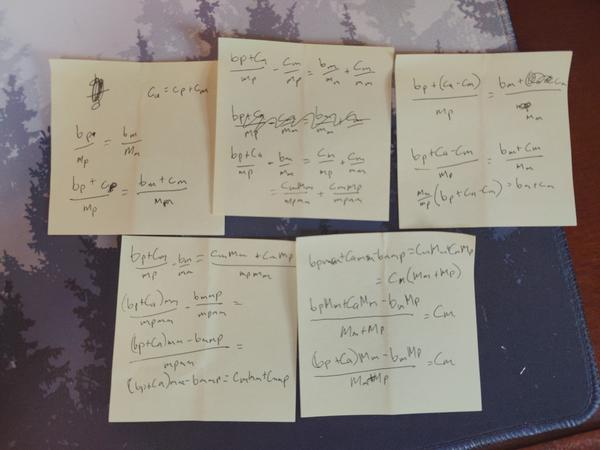 Ca = Cp + Cm
bp/mp = bm/mm
(bp + Cp)/mp = (bm + Cm)/mm
(bp+Ca)/mp - Cm/mp = bm/mm + Cm/mm
(bp+Ca)/mp - bm/mm = Cm/mp + Cm/mm
= CmMm/mpmm + CmMp/mpmm
(bp+(Ca-Cm))/mp = (bm+Cm)/mm
(bp+Ca-Cm)/mp = (bm+Cm)/mm
mm/mp (bp+Ca-Cm) = bm+Cm
(bp+Ca)/mp - bm/mm = (CmMm + CmMp)/mpmm
(bp+Ca)mm/mpmm - bmmp/mpmm =
((bp+Ca)mm - bmmp)/mpmm =
(bp+Ca)mm - bmmp = Cmmm + Cmmp
bpmm+Camm-bmmp = CmMm+CmMp
= Cm(Mm+Mp)
(bpMm+CaMm-bmMp)/(Mm+Mp) = Cm
((bp+Ca)Mm-bmMp)/(Mm+Mp) = Cm